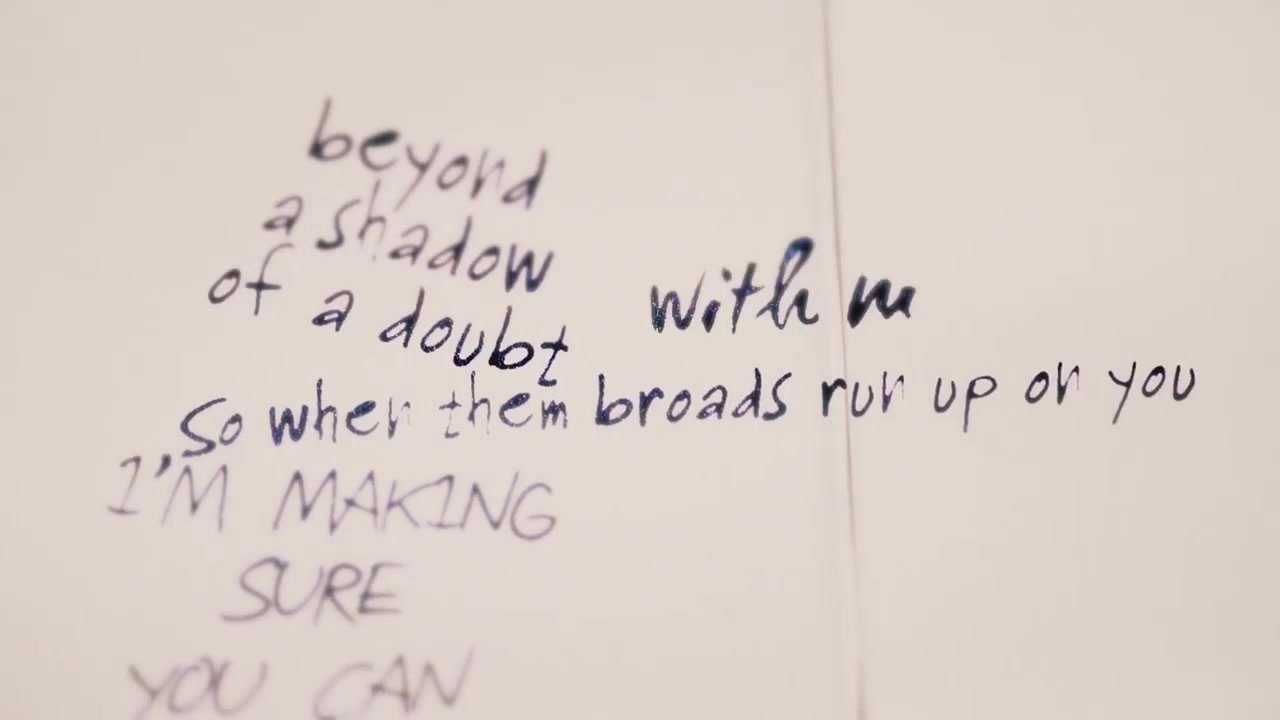 beyond
a shadow
of a doubt
with m
so when them broads run up on you
I'M MAKING
SURE
YOU CAN